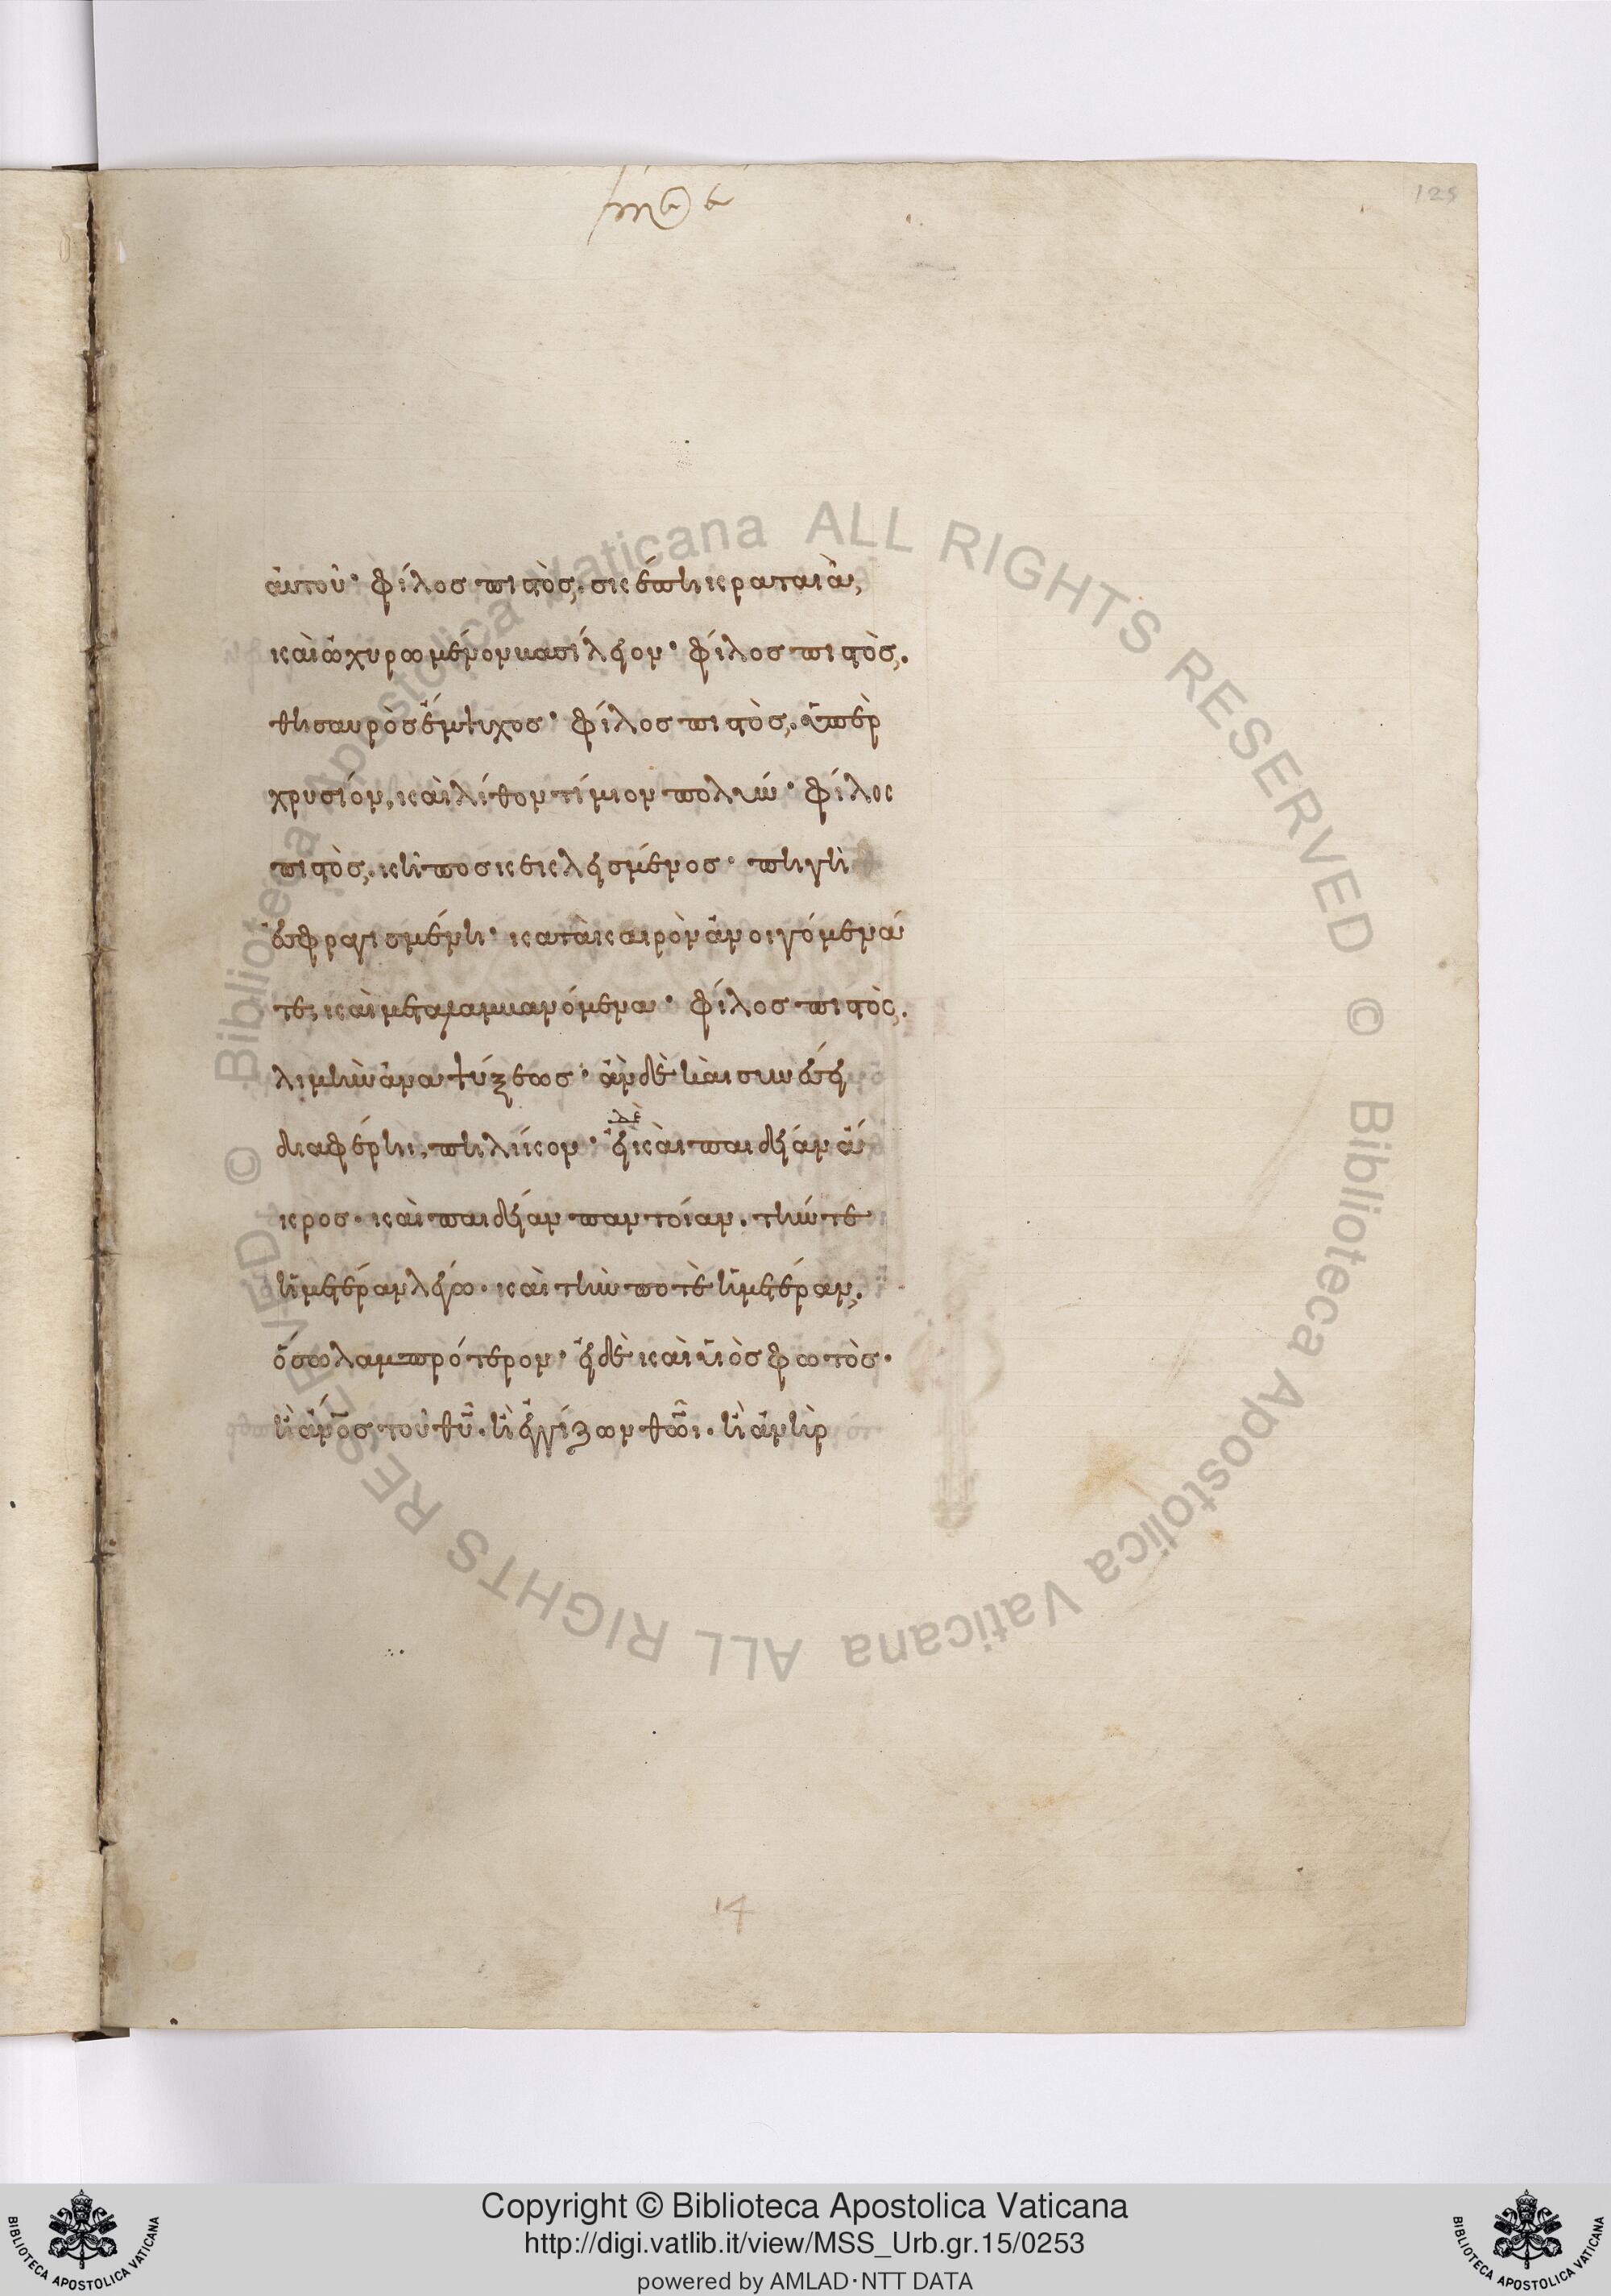 125
αὐτοῦ· φίλος πιστὸς, σκέπη κραταιὰ,
καὶ ὠχυρωμένον βασίλειον· φίλος πιστὸς,
θησαυρὸς ἔμψυχος· φίλος πιστὸς, ὑπὲρ
χρυσίον, καὶ λίθον τίμιον πολὺν· φίλος
πιστὸς, κῆπος κεκλεισμένος· πηγὴ
ἐσφραγισμένη· κατὰ καιρὸν ἀνοιγόμενά
τε, καὶ μεταλαμβανόμενα· φίλος πιστὸς,
λιμὴν ἀναψύξεως· ἂν δὲ καὶ συνέσει
διαφέρηι, πηλίκον· εἰ δὲ καὶ παιδείαν ἄ
κρος· καὶ παιδείαν παντοίαν· τήν τε
ἡμετέραν λέγω· καὶ τὴν ποτὲ ἡμετέραν,
ὅσω λαμπρότερον· εἰ δὲ καὶ υἱὸς φωτὸς·
ἢ ἄνος τοῦ θυ· ἢ ἐγγίζων θωι· ἢ ἀνὴρ
14
© Biblioteca Apostolica Vaticana ALL RIGHTS RESERVED
© Biblioteca Apostolica Vaticana ALL RIGHTS RESERVED
BIBLIOTECA APOSTOLICA VATICANA
Copyright © Biblioteca Apostolica Vaticana
http://digi.vatlib.it/view/MSS_Urb.gr.15/0253
powered by AMLAD·NTT DATA
BIBLIOTECA APOSTOLICA VATICANA